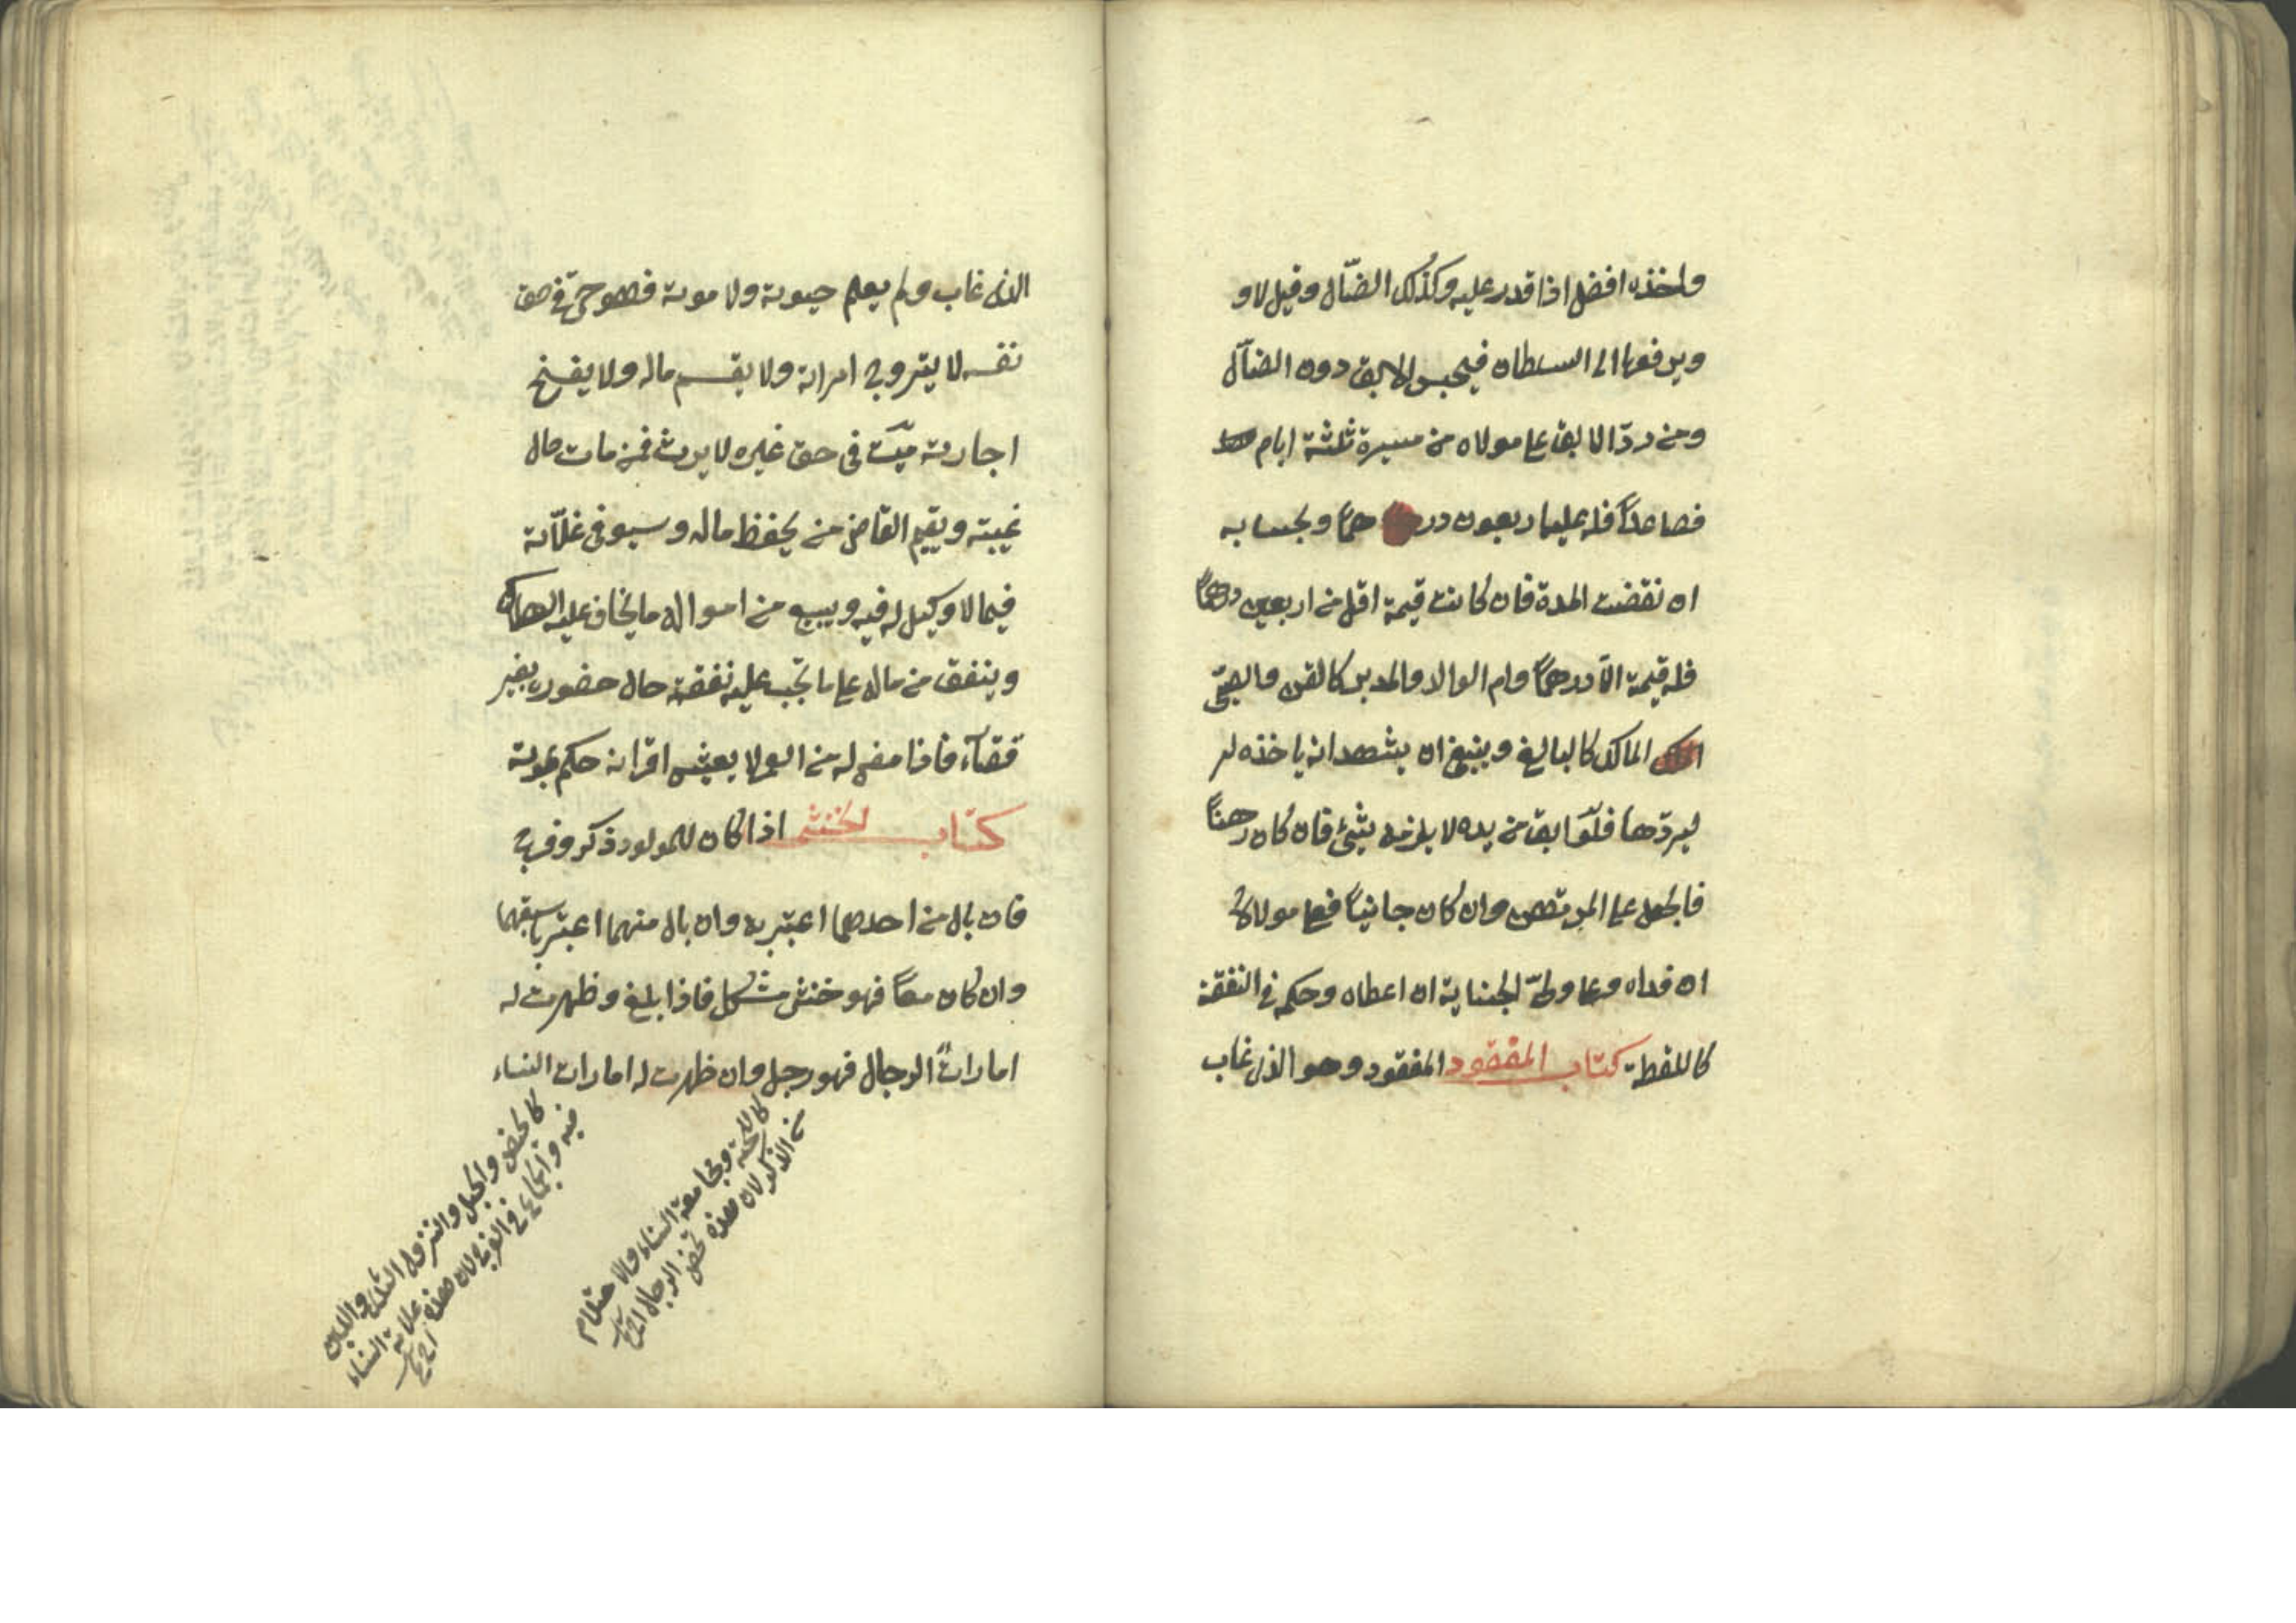 واخذه افضل اذا قدر عليه وكذلك الضّال وقيل لا و
ويرفعها الى السطان فيحبس الابق دون الضآل
ومن ردّ الابق على مولاه من مسيرة ثلثة ايام
فصاعداً فله عليه اربعون در هماً وبحسابه
ان نقضت المدة فان كانت قيمة اقل من اربعين درهماً
فله قيمة الّا درهماً وام الوالد والمدبر كالقن والصبّى
المالك كالبالغ وينبغى ان يشهد انه ياخذه لير
ليردّها فلو ابق من يده لا يلزمه شئ فان كان رهناً
فالجعل على المرتهن وان كان جانياً فعلى مولاه
ان فداه وعلى ولىّ الجناية ان اعطاه وحكمه فى النفقة
كاللقطة كتاب المفقود المفقود وهو الذى غاب
الذى غاب ولم يعلم حيوته ولا موته فهو حىّ فى حق
نفسه لا يتزوج امراته ولا يقسم ماله ولا يفسخ
اجارته ميّت فى حق غيره لا يرث فمن مات حال
غيبته ويقيم القاضى من يحفظ ماله وسيوفى غلّاته
فيما لا وكيل له فيه ويبيع من امواله ما يخاف عليه الهلاك
وينفق من ماله على ما تجب عليه نفقة حال حضوره بغير
قضآء فاذا مضى له من العمر لا يعيش اقرانه حكم بموته
كتاب الخنثى اذا كان للمولود ذكر وفرج
فان بال من احدهما اعتبر به وان بال منهما اعتبر باسبقهما
وان كان معاً فهو خنثى مشكل فاذا بلغ وظهرت له
اماراتُ الرجال فهو رجل وان ظهرت له امارات النساء
كاللحية ومجامعة النساء والاحتلام
من الذكر لان هذه تخص الرجال
كالحيض والحبل والنزول الثدى واللبن
فيه والجماع فى الفرج لان هذه علامة النساء